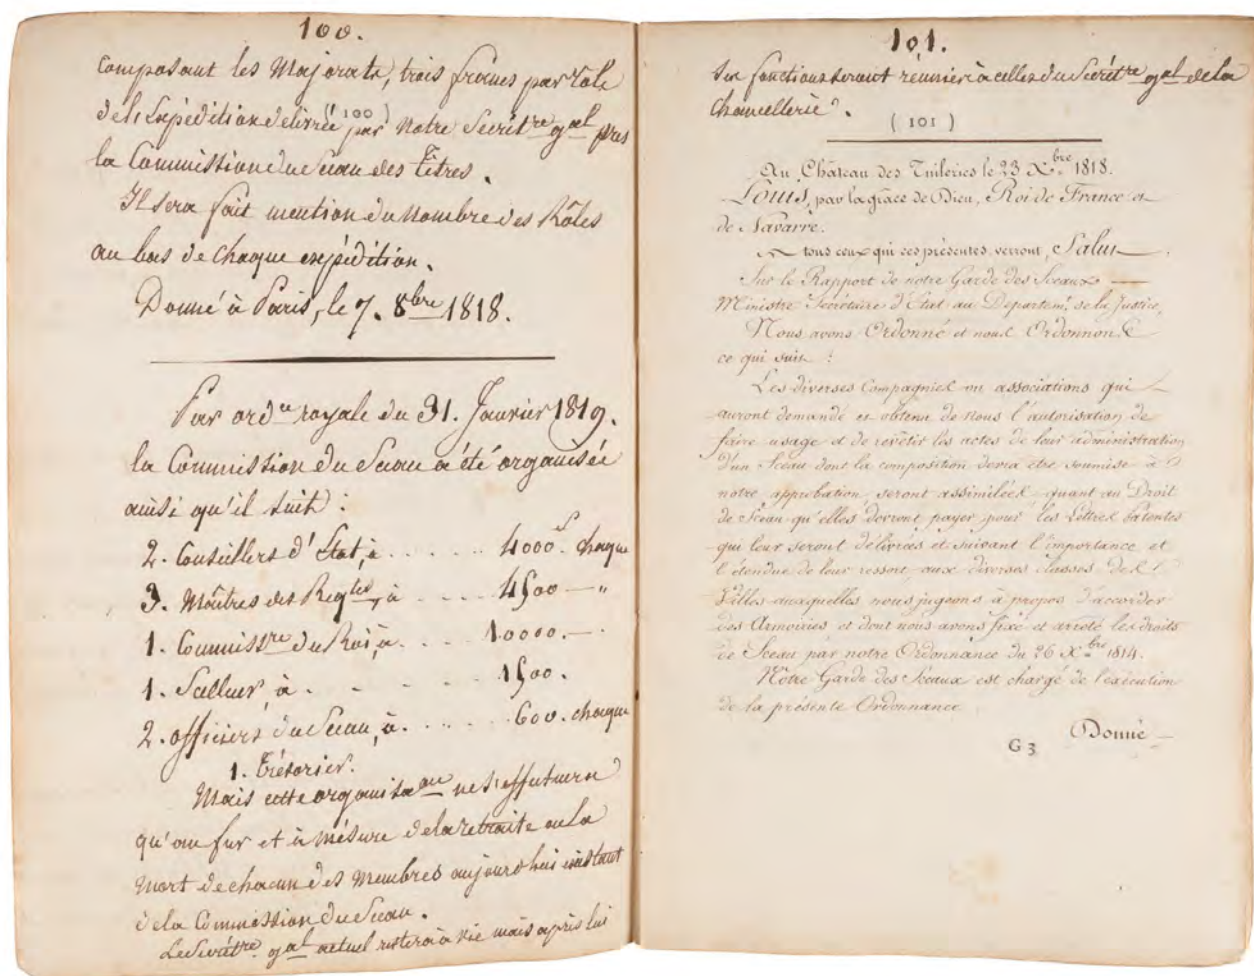 100.
composant les Majorats, trois francs par rôle
de l'Expédition délivrée par notre Secrét.re g.al près
( 100 )
la Commission du Sceau des Titres.
Il sera fait mention du nombre des Rôles
au bas de chaque expédition.
Donné à Paris, le 7. 8bre 1818.
Par ord.ce royale du 31. Janvier 1819.
la Commission du Sceau a été organisée
ainsi qu'il suit :
2. Conseillers d'Etat, à . . . . . . 4000.f chaque
3. Maîtres des Req.tes, à . . . . 4500 — "
1. Commiss.re du Roi, à . . . . 10000. —
1. Scelleur, à . . . . . 1500.
2. officiers du Sceau, à . . . . . . 600. chaque
1. Trésorier.
Mais cette organisa.on ne s'effectuera
qu'au fur et à mésure de la retraite ou la
mort de chacun des membres aujourd'hui existant
de la Commission du Sceau.
Le Secrét.re g.al actuel restera à vie mais après lui
101.
ses fonctions seront réunies à celles du Secrét.re g.al de la
Chancellerie.
( 101 )
Au Château des Tuileries le 23 X.bre 1818.
Louis, par la grace de Dieu, Roi de France et
de Navarre.
A tous ceux qui ces présentes verront, Salut.
Sur le Rapport de notre Garde des Sceaux —
Ministre Secrétaire d'Etat au Départem.t de la Justice,
Nous avons Ordonné et nous Ordonnons
ce qui suit :
Les diverses Compagnies ou associations qui
auront demandé et obtenu de nous l'autorisation de
faire usage et de revêtir les actes de leur administration
d'un Sceau dont la composition devra etre soumise à
notre approbation, seront assimilées quant au Droit
de Sceau qu'elles devront payer pour les Lettres Patentes
qui leur seront délivrées et suivant l'importance et
l'étendue de leur ressort, aux diverses classes des
Villes auxquelles nous jugeons à propos d'accorder
des Armoiries et dont nous avons fixé et arreté les droits
de Sceau par notre Ordonnance du 26 X.bre 1814.
Nôtre Garde des Sceaux est chargé de l'exécution
de la présente Ordonnance
Donné —
G 3